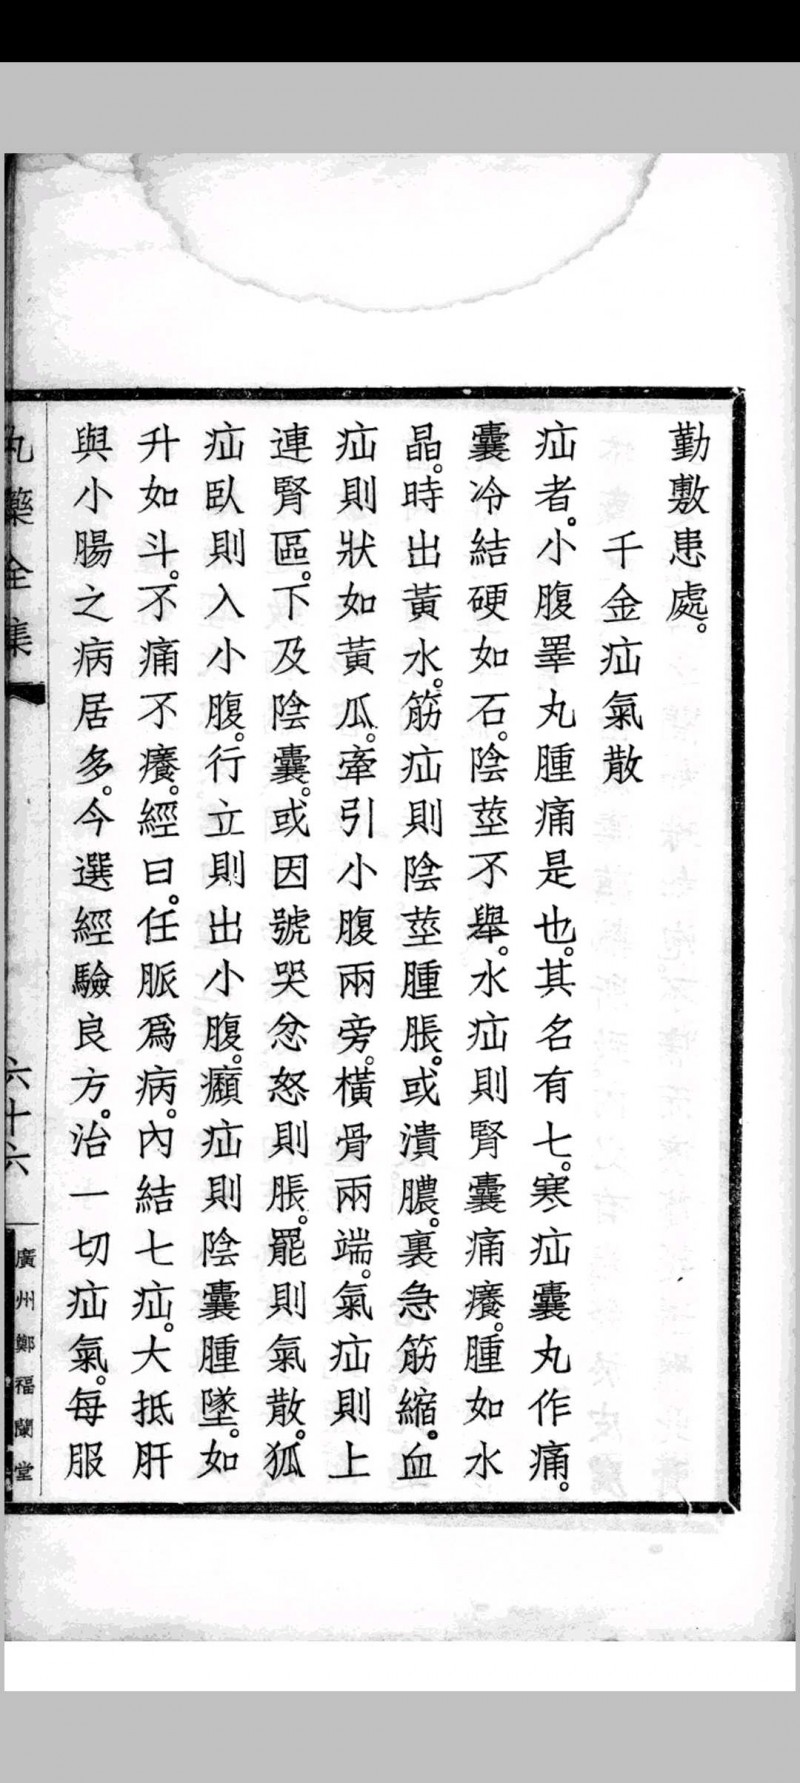 勤敷患處。
千金疝氣散
疝者。小腹睪丸腫痛是也。其名有七。寒疝囊丸作痛。
囊冷結硬如石。陰莖不舉。水疝則腎囊痛癢。腫如水
晶。時出黃水。筋疝則陰莖腫脹。或潰膿。裏急筋縮。血
疝則狀如黃瓜。牽引小腹兩旁。橫骨兩端。氣疝則上
連腎區。下及陰囊。或因號哭忿怒則脹。罷則氣散。狐
疝臥則入小腹。行立則出小腹。㿗疝則陰囊腫墜。如
升如斗。不痛不癢。經曰。任脈爲病。內結七疝。大抵肝
與小腸之病居多。今選經驗良方。治一切疝氣。每服
丸藥全集
六十六
廣州鄭福蘭堂